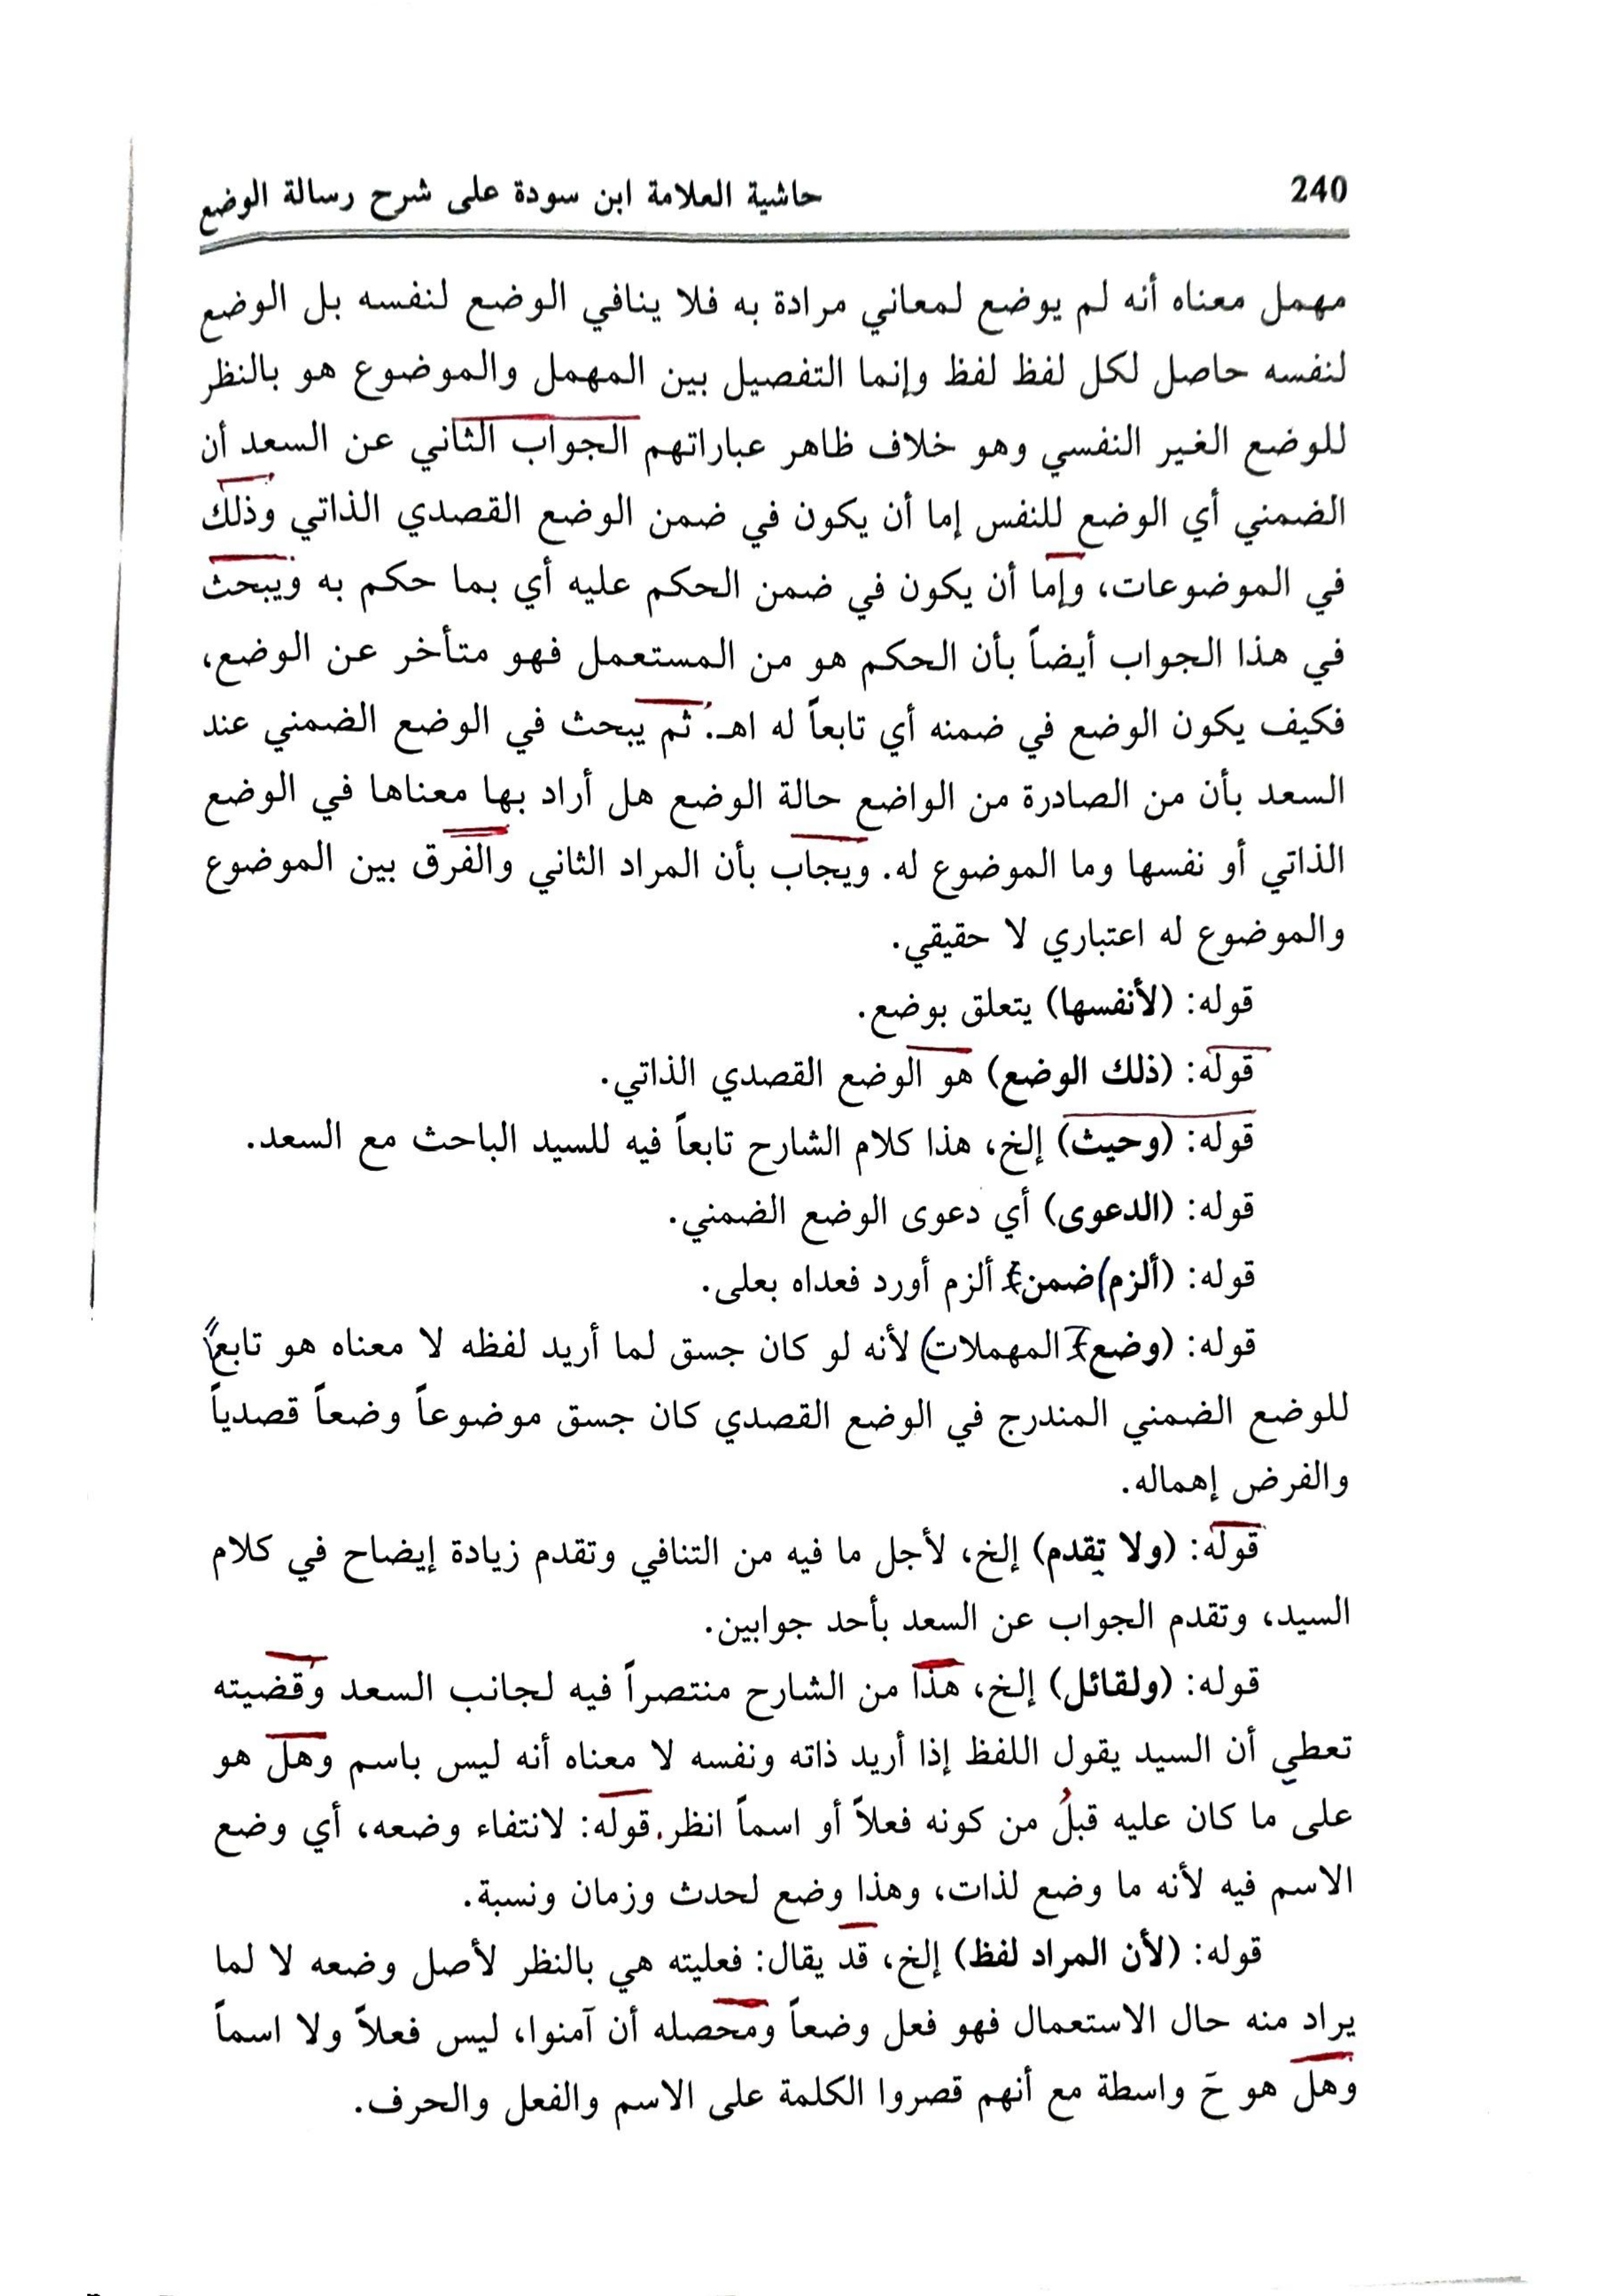 240
حاشية العلامة ابن سودة على شرح رسالة الوضع
مهمل معناه أنه لم يوضع لمعاني مرادة به فلا ينافي الوضع لنفسه بل الوضع
لنفسه حاصل لكل لفظ لفظ وإنما التفصيل بين المهمل والموضوع هو بالنظر
للوضع الغير النفسي وهو خلاف ظاهر عباراتهم الجواب الثاني عن السعد أن
الضمني أي الوضع للنفس إما أن يكون في ضمن الوضع القصدي الذاتي وذلك
في الموضوعات، وإما أن يكون في ضمن الحكم عليه أي بما حكم به ويبحث
في هذا الجواب أيضاً بأن الحكم هو من المستعمل فهو متأخر عن الوضع،
فكيف يكون الوضع في ضمنه أي تابعاً له اهـ. ثم يبحث في الوضع الضمني عند
السعد بأن من الصادرة من الواضع حالة الوضع هل أراد بها معناها في الوضع
الذاتي أو نفسها وما الموضوع له. ويجاب بأن المراد الثاني والفرق بين الموضوع
والموضوع له اعتباري لا حقيقي.
قوله: (لأنفسها) يتعلق بوضع.
قوله: (ذلك الوضع) هو الوضع القصدي الذاتي.
قوله: (وحيث) إلخ، هذا كلام الشارح تابعاً فيه للسيد الباحث مع السعد.
قوله: (الدعوى) أي دعوى الوضع الضمني.
قوله: (ألزم) ضمن ألزم أورد فعداه بعلى.
قوله: (وضع المهملات) لأنه لو كان جسق لما أريد لفظه لا معناه هو تابعاً
للوضع الضمني المندرج في الوضع القصدي كان جسق موضوعاً وضعاً قصدياً
والفرض إهماله.
قوله: (ولا تقدم) إلخ، لأجل ما فيه من التنافي وتقدم زيادة إيضاح في كلام
السيد، وتقدم الجواب عن السعد بأحد جوابين.
قوله: (ولقائل) إلخ، هذا من الشارح منتصراً فيه لجانب السعد وقضيته
تعطي أن السيد يقول اللفظ إذا أريد ذاته ونفسه لا معناه أنه ليس باسم وهل هو
على ما كان عليه قبلُ من كونه فعلاً أو اسماً انظر. قوله: لانتفاء وضعه، أي وضع
الاسم فيه لأنه ما وضع لذات، وهذا وضع لحدث وزمان ونسبة.
قوله: (لأن المراد لفظ) إلخ، قد يقال: فعليته هي بالنظر لأصل وضعه لا لما
يراد منه حال الاستعمال فهو فعل وضعاً ومحصله أن آمنوا، ليس فعلاً ولا اسماً
وهل هو حَ واسطة مع أنهم قصروا الكلمة على الاسم والفعل والحرف.